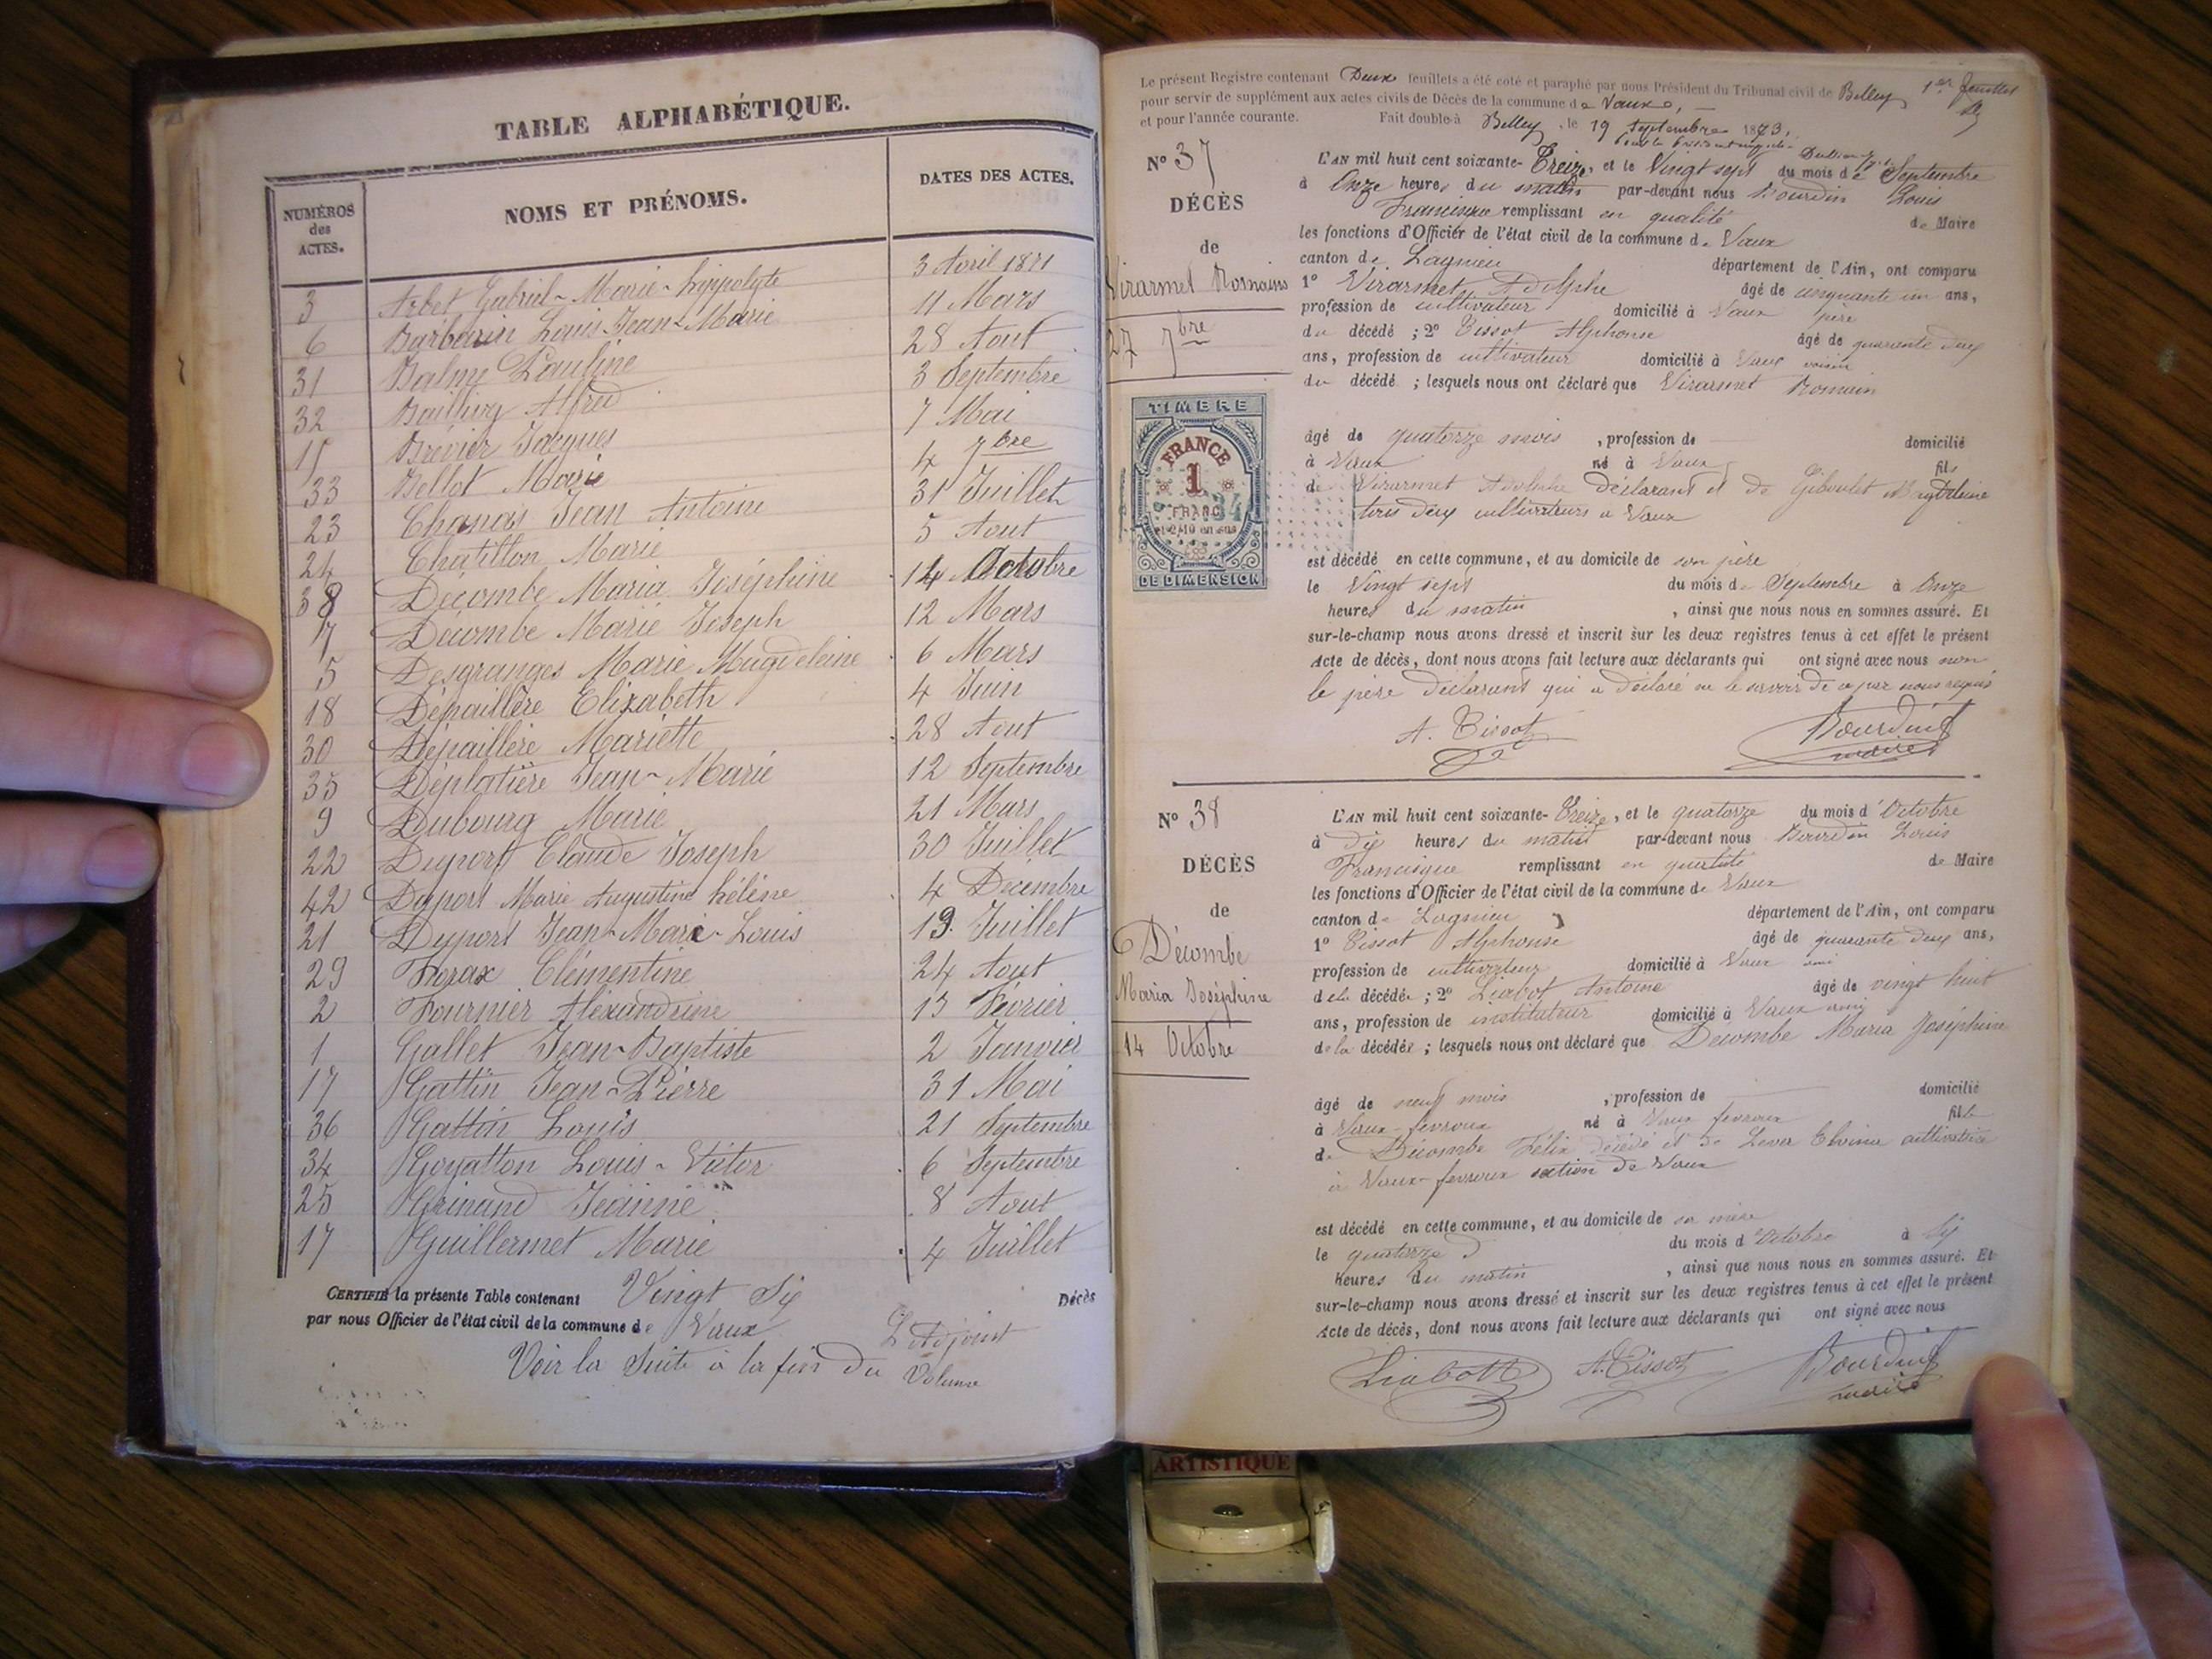 TABLE ALPHABÉTIQUE.
NUMÉROS des ACTES.
NOMS ET PRÉNOMS.
DATES DES ACTES.
3 Arbet Gabriel-Marie-hippolyte 3 Avril 1871
6 Barbarin Louis Jean-Marie 11 Mars
31 Balme Pauline 28 Aout
32 Alfred 3 Septembre
Brévier Jacques 7 Mai
33 Bellot Marie 4 7bre
23 Chanais Jean Antoine 31 Juillet
24 Chatillon Marie 5 Aout
38 Décombe Maria Joséphine 14 Octobre
7 Décombe Marie Joseph 12 Mars
5 Desgranges Marie Magdeleine 6 Mars
18 Dépaillère Elizabeth 4 Juin
30 Dépaillère Mariette 28 Aout
35 Déplatière Jean-Marie 12 Septembre
9 Dubourg Marie 21 Mars
22 Duport Claude Joseph 30 Juillet
42 Duport Marie Augustine hélène 4 Décembre
21 Duport Jean-Marie-Louis 19 Juillet
29 Forax Clémentine 24 Aout
2 Fournier Alexandrine 13 Février
1 Gallet Jean-Baptiste 2 Janvier
17 Gattin Jean-Pierre 31 Mai
36 Gattin Louis 21 Septembre
34 Goyatton Louis-Victor 6 Septembre
25 Grinand Jeanne 8 Aout
17 Guillermet Marie 4 Juillet
CERTIFIÉ la présente Table contenant Vingt Six Décès
par nous Officier de l'état civil de la commune de Vaux
L'Adjoint
Voir la Suite à la fin du Volume
Le présent Registre contenant Deux feuillets a été coté et paraphé par nous Président du Tribunal civil de Belley 1er feuillet
pour servir de supplément aux actes civils de Décès de la commune de Vaux,
et pour l'année courante. Fait double à Belley, le 19 Septembre 1873.
N° 37
DÉCÈS
de
Virarmet Romain
27 7bre
TIMBRE
FRANCE
1
FRANC
34
DE DIMENSION
L'AN mil huit cent soixante-Treize, et le Vingt sept du mois de Septembre
à Onze heures du matin par-devant nous Bourdin Louis
Francisque remplissant en qualité de Maire
les fonctions d'Officier de l'état civil de la commune de Vaux
canton de Lagnieu département de l'Ain, ont comparu
1° Virarmet Adolphe âgé de cinquante un ans,
profession de cultivateur domicilié à Vaux père
du décédé ; 2° Tissot Alphonse âgé de quarante deux
ans, profession de cultivateur domicilié à Vaux voisin
du décédé ; lesquels nous ont déclaré que Virarmet Romain
âgé de quatorze mois, profession de domicilié
à Vaux né à Vaux fils
de Virarmet Adolphe déclarant et de Giboulet Magdeleine
tous deux cultivateurs à Vaux
est décédé en cette commune, et au domicile de son père
le Vingt sept du mois de Septembre à Onze
heures du matin, ainsi que nous nous en sommes assuré. Et
sur-le-champ nous avons dressé et inscrit sur les deux registres tenus à cet effet le présent
Acte de décès, dont nous avons fait lecture aux déclarants qui ont signé avec nous non
le père déclarant qui a déclaré ne le savoir de ce par nous requis
A. Tissot
Bourdin
maire
N° 38
DÉCÈS
de
Décombe
Maria Joséphine
14 Octobre
L'AN mil huit cent soixante-Treize, et le quatorze du mois d'Octobre
à dix heures du matin par-devant nous Bourdin Louis
Francisque remplissant en qualité de Maire
les fonctions d'Officier de l'état civil de la commune de Vaux
canton de Lagnieu département de l'Ain, ont comparu
1° Tissot Alphonse âgé de quarante deux ans,
profession de cultivateur domicilié à Vaux ami
de la décédée ; 2° Liabot Antoine âgé de vingt huit
ans, profession de instituteur domicilié à Vaux
de la décédée ; lesquels nous ont déclaré que Décombe Maria Joséphine
âgé de neuf mois, profession de domicilié
à Vaux-fevroux né à Vaux fevroux fille
de Décombe Félix décédé et de cultivatrice
à Vaux-fevroux section de Vaux
est décédé en cette commune, et au domicile de sa mère
le quatorze du mois d'Octobre à Six
heures du matin, ainsi que nous nous en sommes assuré. Et
sur-le-champ nous avons dressé et inscrit sur les deux registres tenus à cet effet le présent
Acte de décès, dont nous avons fait lecture aux déclarants qui ont signé avec nous
Liabott A. Tissot Bourdin
maire
ARTISTIQUE